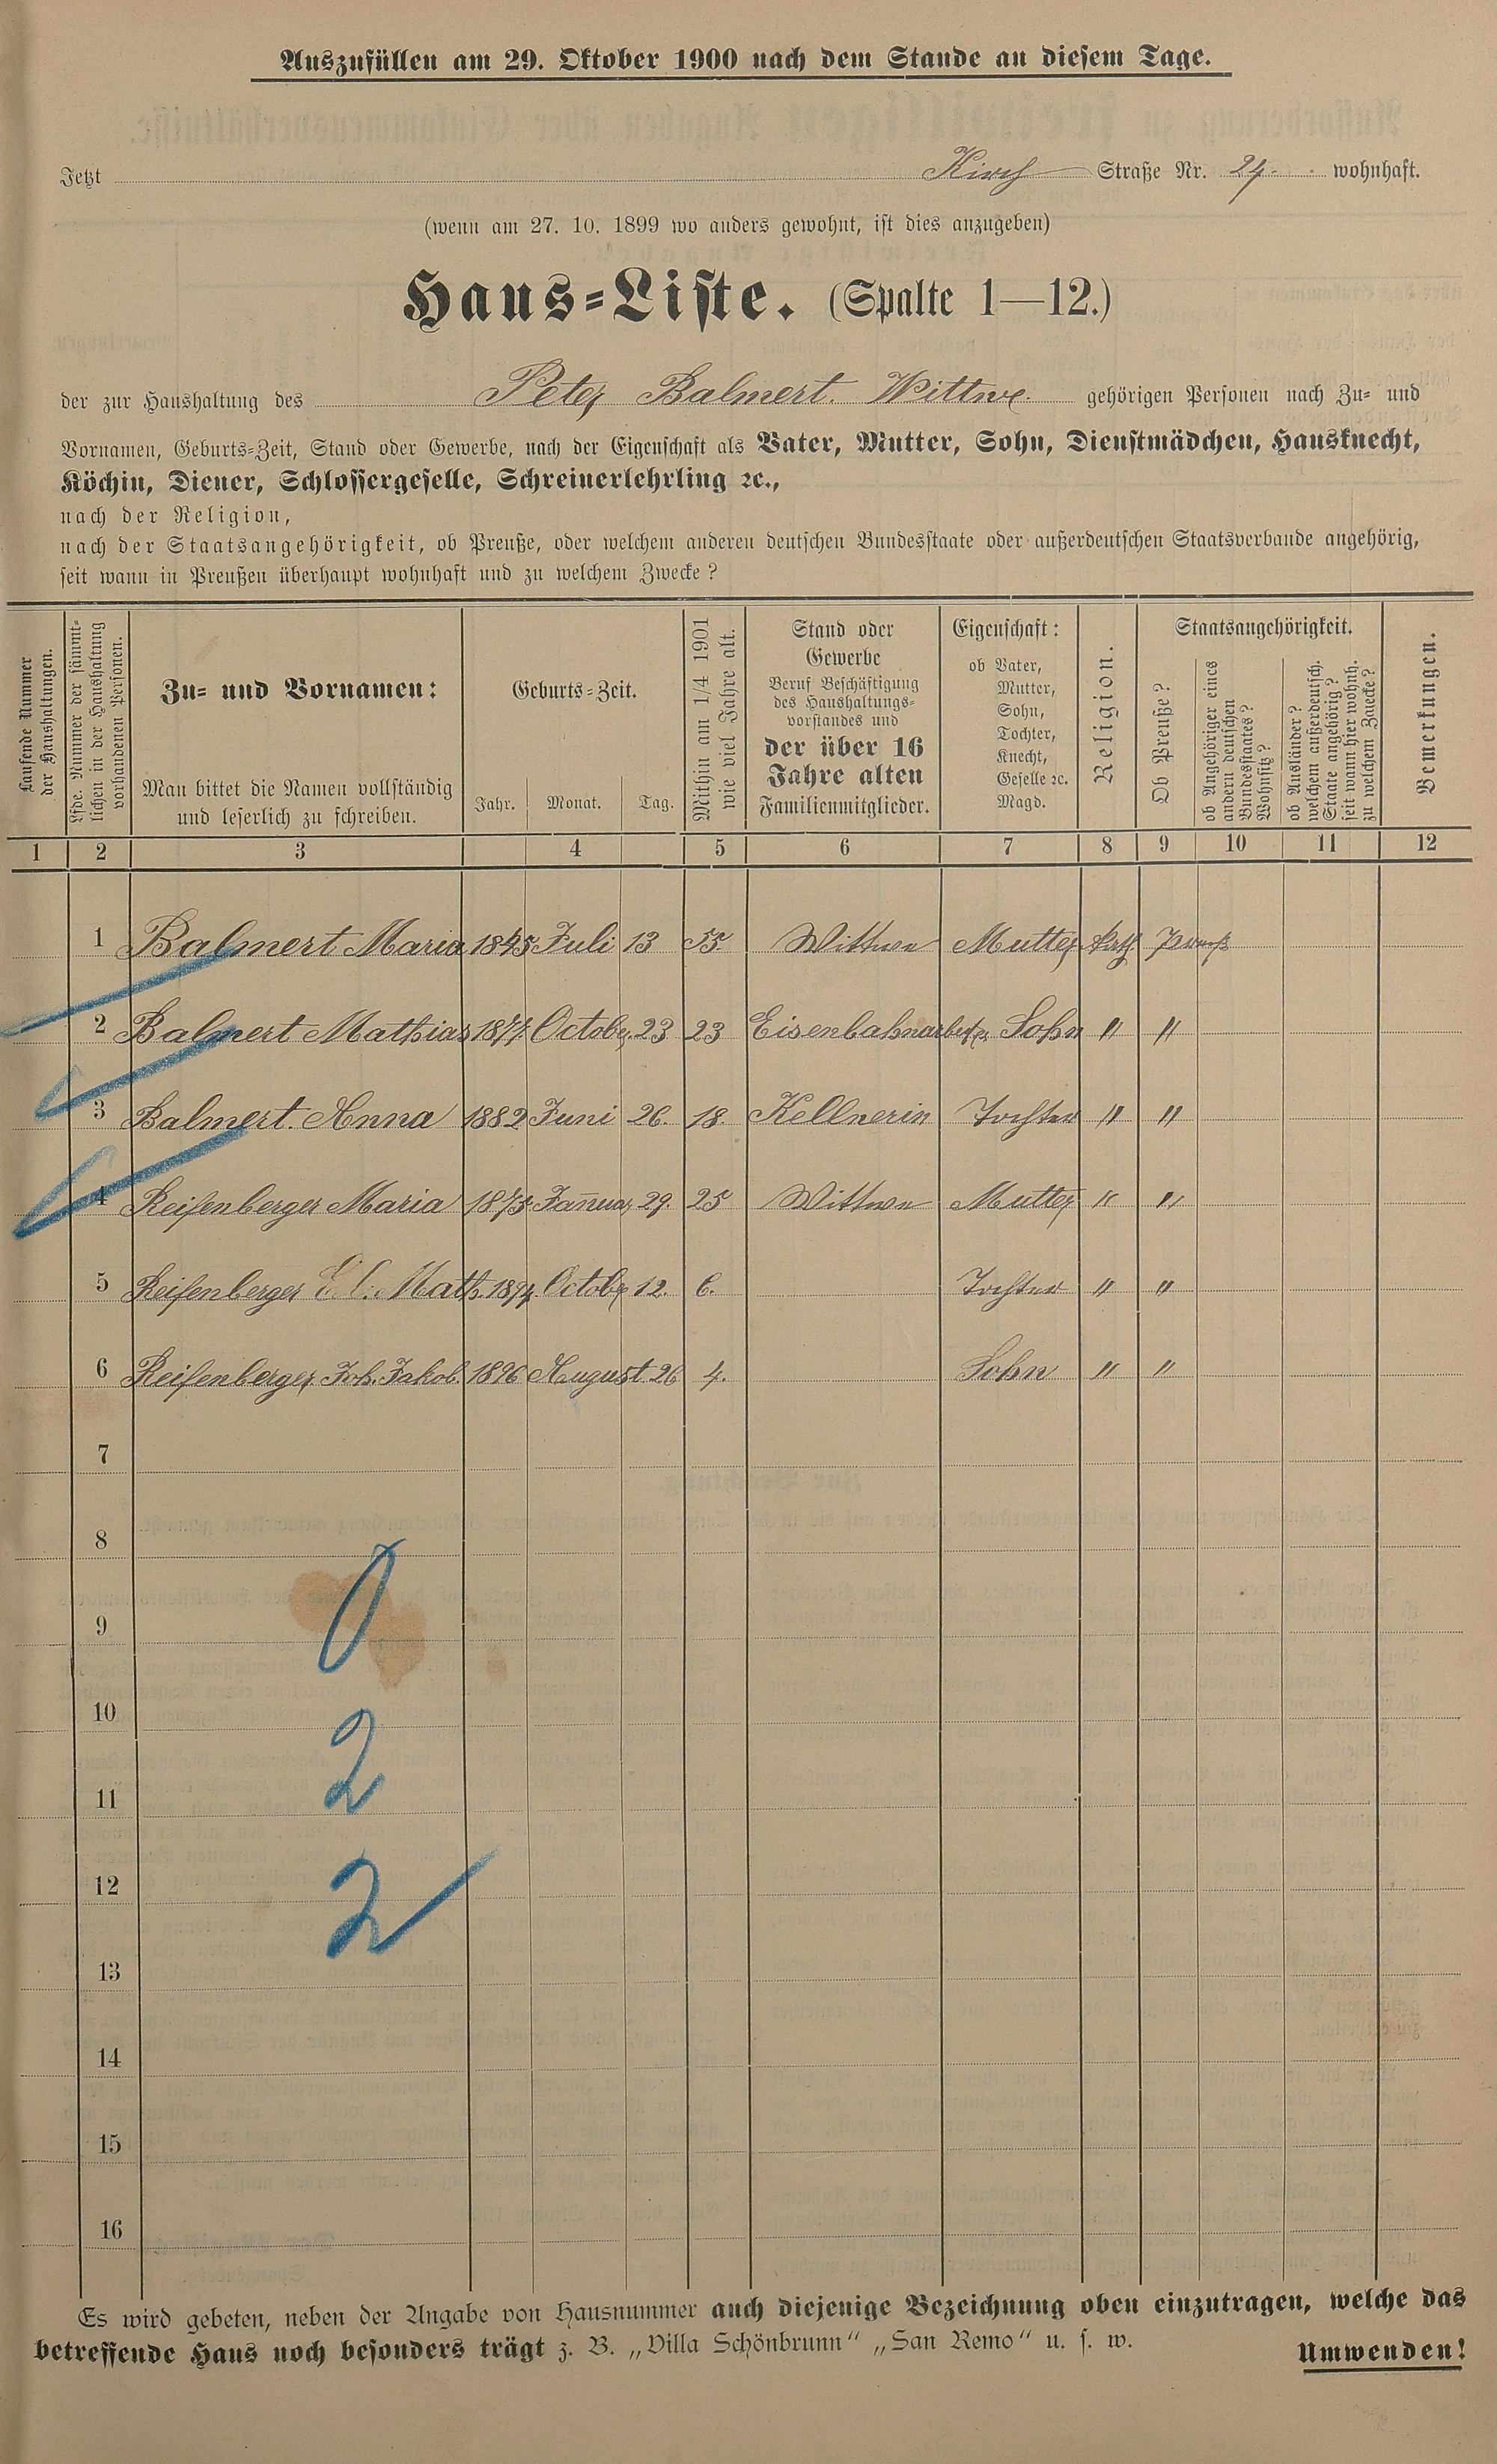 Auszufüllen am 29. Oktober 1900 nach dem Stande an diesem Tage.
Jetzt Kirch Straße Nr. 24. wohnhaft.
(wenn am 27. 10. 1899 wo anders gewohnt, ist dies anzugeben)
Haus-Liste. (Spalte 1—12.)
der zur Haushaltung des Peter Balmert. Wittwe. gehörigen Personen nach Zu- und
Vornamen, Geburts-Zeit, Stand oder Gewerbe, nach der Eigenschaft als Vater, Mutter, Sohn, Dienstmädchen, Hausknecht,
Köchin, Diener, Schlossergeselle, Schreinerlehrling ꝛc.,
nach der Religion,
nach der Staatsangehörigkeit, ob Preuße, oder welchem anderen deutschen Bundesstaate oder außerdeutschen Staatsverbande angehörig,
seit wann in Preußen überhaupt wohnhaft und zu welchem Zwecke?
Laufende Nummer
der Haushaltungen.
Lfde. Nummer der sämmt-
lichen in der Haushaltung
vorhandenen Personen.
Zu- und Vornamen:
Man bittet die Namen vollständig
und leserlich zu schreiben.
Geburts-Zeit.
Jahr. Monat. Tag.
Mithin am 1/4 1901
wie viel Jahre alt.
Stand oder
Gewerbe
Beruf Beschäftigung
des Haushaltungs-
vorstandes und
der über 16
Jahre alten
Familienmitglieder.
Eigenschaft:
ob Vater,
Mutter,
Sohn,
Tochter,
Knecht,
Geselle ꝛc.
Magd.
Religion.
Staatsangehörigkeit.
Ob Preuße?
ob Angehöriger eines
andern deutschen
Bundesstaates?
Wohnsitz?
ob Ausländer?
welchem außerdeutsch.
Staate angehörig?
seit wann hier wohnh.
zu welchem Zwecke?
Bemerkungen.
1 2 3 4 5 6 7 8 9 10 11 12
1 Balmert Maria 1845 Juli 13 55 Wittwe Mutter kath Preuß
2 Balmert Mathias 1877. October 23 23 Eisenbahnarbeiter Sohn " "
3 Balmert. Anna 1882 Juni 26. 18. Kellnerin Tochter " "
4 Reifenberger Maria 1875. Januar 29. 25 Wittwe Mutter " "
5 Reifenberger Math. 1894. October 12. 6. Tochter " "
6 Reifenberger Joh. Jakob. 1896 August. 26 4. Sohn " "
7
8
0
9
10
2
11
12
2
13
14
15
16
Es wird gebeten, neben der Angabe von Hausnummer auch diejenige Bezeichnung oben einzutragen, welche das
betreffende Haus noch besonders trägt z. B. „Villa Schönbrunn“ „San Remo“ u. s. w.
Umwenden!